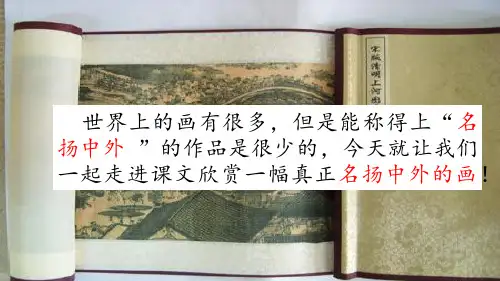 世界上的画有很多，但是能称得上“名
扬中外 ”的作品是很少的，今天就让我们
一起走进课文欣赏一幅真正名扬中外的画！
宋版清明上河图